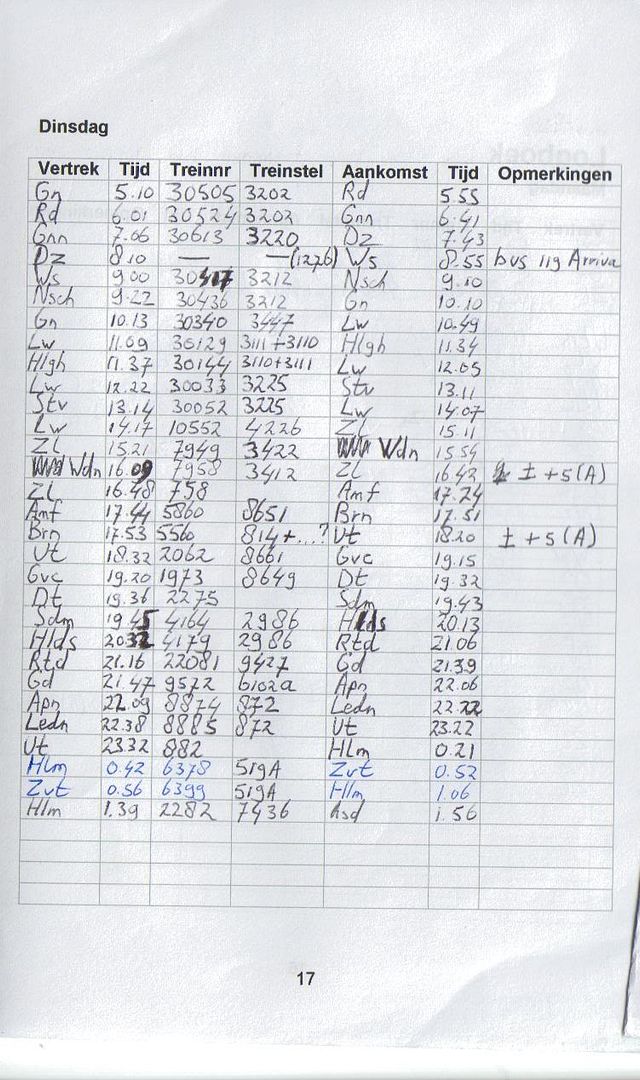 Dinsdag
Vertrek Tijd Treinnr Treinstel Aankomst Tijd Opmerkingen
Gn 5.10 30505 3202 Rd 5.55
Rd 6.01 30524 3202 Gnn 6.41
Gnn 7.06 30613 3220 Dz 7.43
Dz 8.10 — —(1276) Ws 8.55 bus 119 Arriva
Ws 9.00 30417 3212 Nsch 9.10
Nsch 9.22 30436 3212 Gn 10.10
Gn 10.13 30340 3447 Lw 10.49
Lw 11.09 30129 3111+3110 Hlgh 11.34
Hlgh 11.37 30144 3110+3111 Lw 12.05
Lw 12.22 30033 3225 Stv 13.11
Stv 13.14 30052 3225 Lw 14.07
Lw 14.17 10552 4226 Zl 15.11
Zl 15.21 7949 3422 Wdn 15.54
Wdn 16.09 7958 3412 Zl 16.42 ± +5 (A)
Zl 16.48 758 Amf 17.24
Amf 17.44 5860 8651 Brn 17.51
Brn 17.53 5560 814+...? Ut 18.20 ± +5 (A)
Ut 18.32 2062 8661 Gvc 19.15
Gvc 19.20 1973 8649 Dt 19.32
Dt 19.36 2275 Sdm 19.43
Sdm 19.45 4164 2986 Hlds 20.13
Hlds 20.32 4179 2986 Rtd 21.06
Rtd 21.16 22081 9427 Gd 21.39
Gd 21.47 9572 6102a Apn 22.06
Apn 22.09 8874 872 Ledn 22.22
Ledn 22.38 8885 872 Ut 23.22
Ut 23.32 882 HLm 0.21
Hlm 0.42 6378 519A Zvt 0.52
Zvt 0.56 6399 519A Hlm 1.06
Hlm 1.39 2282 7436 Asd 1.56
17